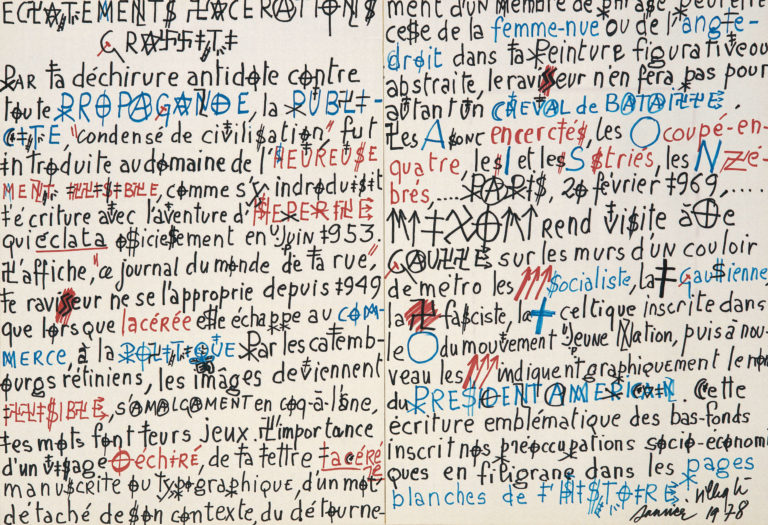 ECLATEMENTS LACERATIONS
GRAFFITI
PAR la déchirure antidote contre
toute PROPAGANDE, la PUBLI-
CITE, "condensé de civilisation" fut
introduite au domaine de l'HEUREUSE
MENT ILLISIBLE, comme s'y indroduisit
l'écriture avec l'aventure d'HEPERILE
qui éclata officiellement en juin 1953.
L'affiche, "ce journal du monde de la rue,"
le ravisseur ne se l'approprie depuis 1949
que lorsque lacérée elle échappe au COM-
MERCE, à la POLITIQUE Par les calemb-
ourgs rétiniens, les images deviennent
ILLISIBLE, s'AMALGAMENT en coq-à-l'âne,
les mots font leurs jeux. L'importance
d'un visage déchiré, de la lettre lacéré
manuscrite ou typographique, d'un mot
détaché de son contexte, du détourne-
ment d'un membre de phrase peut être
celle de la femme-nue ou de l'angle-
droit dans la Peinture figurative ou
abstraite, le ravisseur n'en fera pas pour
autant un CHEVAL de BATAILLE.
Les A sont encerclés, les O coupé-en-
quatre, les I et les S striés, les N Zé-
brés,.... PARIS, 20 février 1969,.....
NIXON rend visite à De
GAULLE sur les murs d'un couloir
de métro les socialiste, la gaullienne,
la fasciste, la celtique inscrite dans
le O du mouvement "Jeune Nation, puis à nou-
veau les indiquent graphiquement le nom
du PRESIDENT AMERICAIN. Cette
écriture emblématique des bas-fonds
inscrit nos préoccupations socio-economi
ques en filigrane dans les pages
blanches de l'HISTOIRE. Villeglé
Janvier 1978